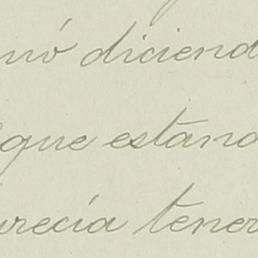 nó diciend
que estand
recía tener